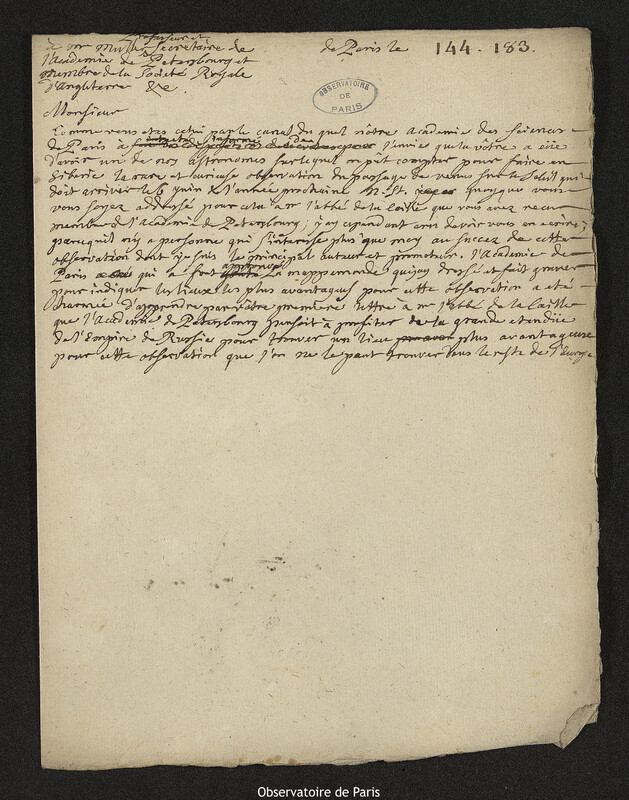 Professeur et
à mr Muller Secrétaire de
l'Academie de Petersbourg et
membre de la Societé Royale
d'Angleterre &c.
de Paris le 144. 183.
OBSERVATOIRE DE PARIS
Monsieur
Comme vous etes celui par le canal du quel nôtre Academie des sciences
de Paris a été informé de l'envie que la vôtre a eüe
d'avoir un de nos astronomes sur lequel on pût compter pour faire en
Siberie la rare et curieuse observation du passage de venus sur le Soleil qui
doit arriver le 6 Juin de l'année prochaine N. St. quoyque vous
vous soyez addressé pour cela a mr l'abbé de la Caille que vous avez receu
membre de l'academie de Petersbourg; j'ay cependant cru devoir vous en ecrire;
parcequ'il n'y a personne qui s'interesse plus que moy au succez de cette
observation dont je suis le principal auteur et promoteur. l'Academie de
Paris qui a fort approuvé la mappemonde que j'ay dressé et fait graver
pour indiquer les lieux les plus avantageux pour cette observation a eté
charmée d'apprendre par vôtre premiere lettre à mr l'abbé de la Caille
que l'Academie de Petersbourg pensoit à profiter de la grande etendüe
de l'Empire de Russie pour trouver un lieu plus avantageux
pour cette observation que l'on ne le peut trouver dans le reste de l'Europe
Observatoire de Paris